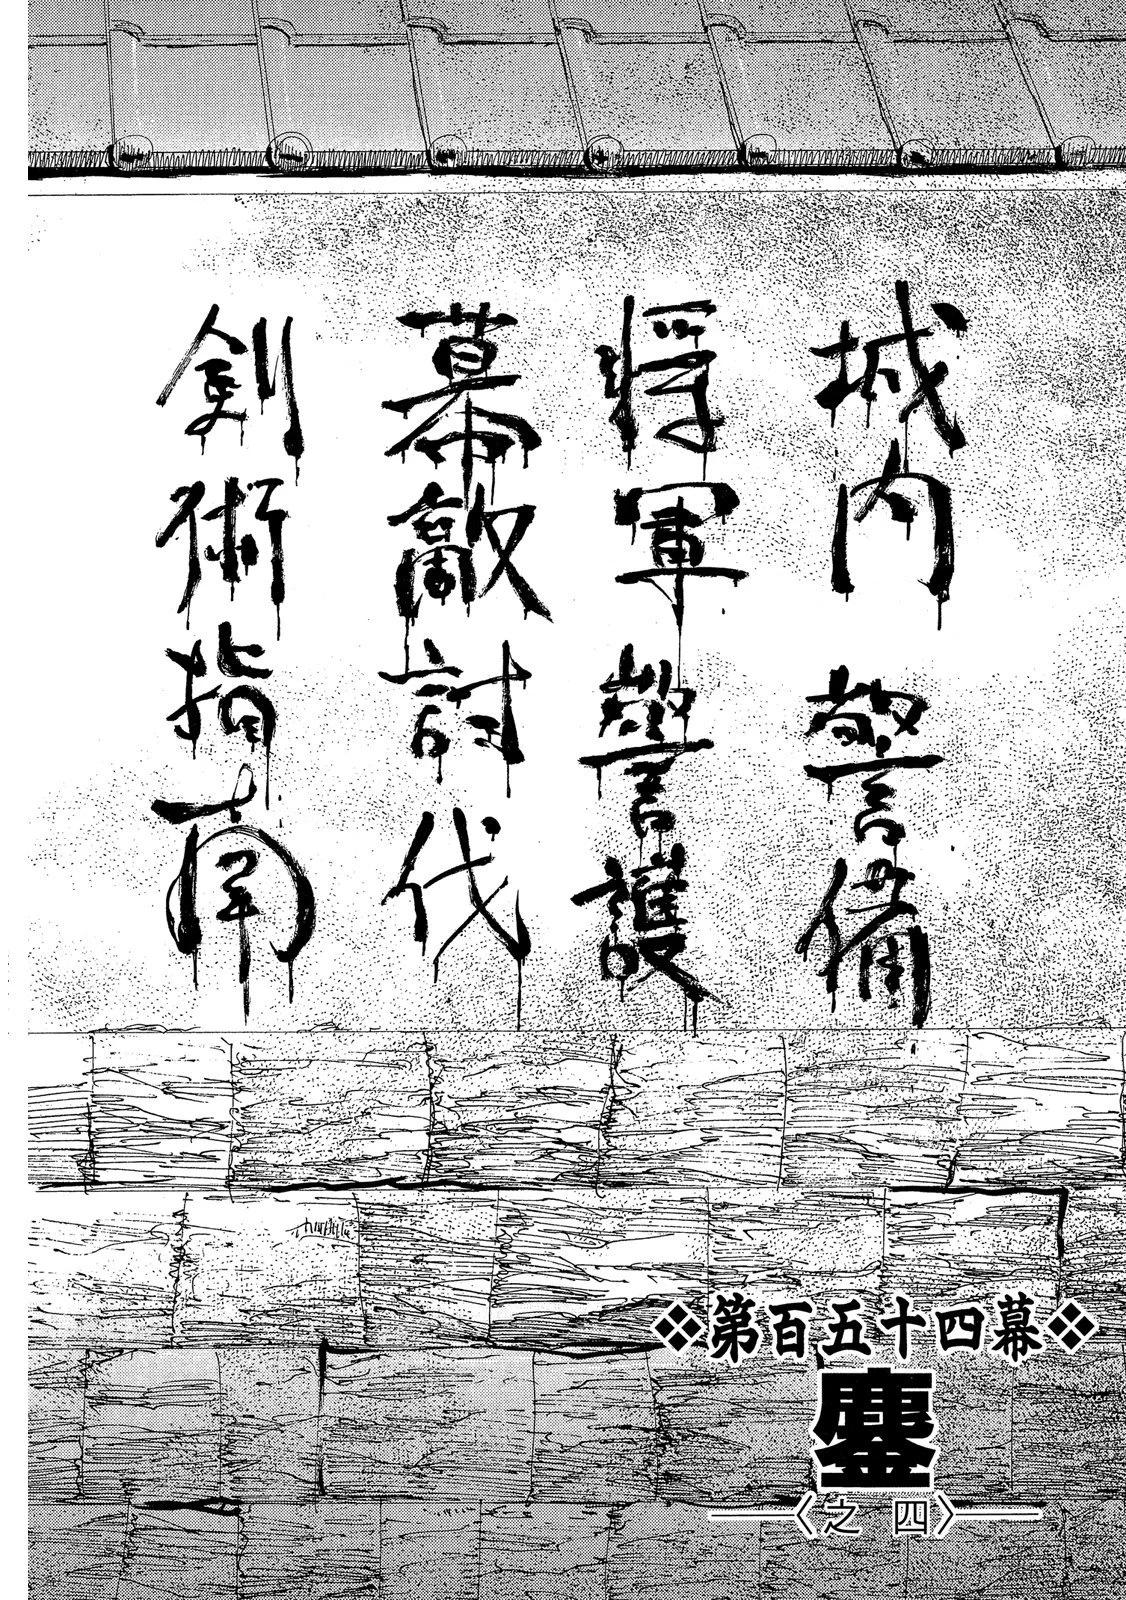 城内 警備
将軍警護
幕敵討代
剣術指南
❖第百五十四幕❖
鏖
〈之 四〉